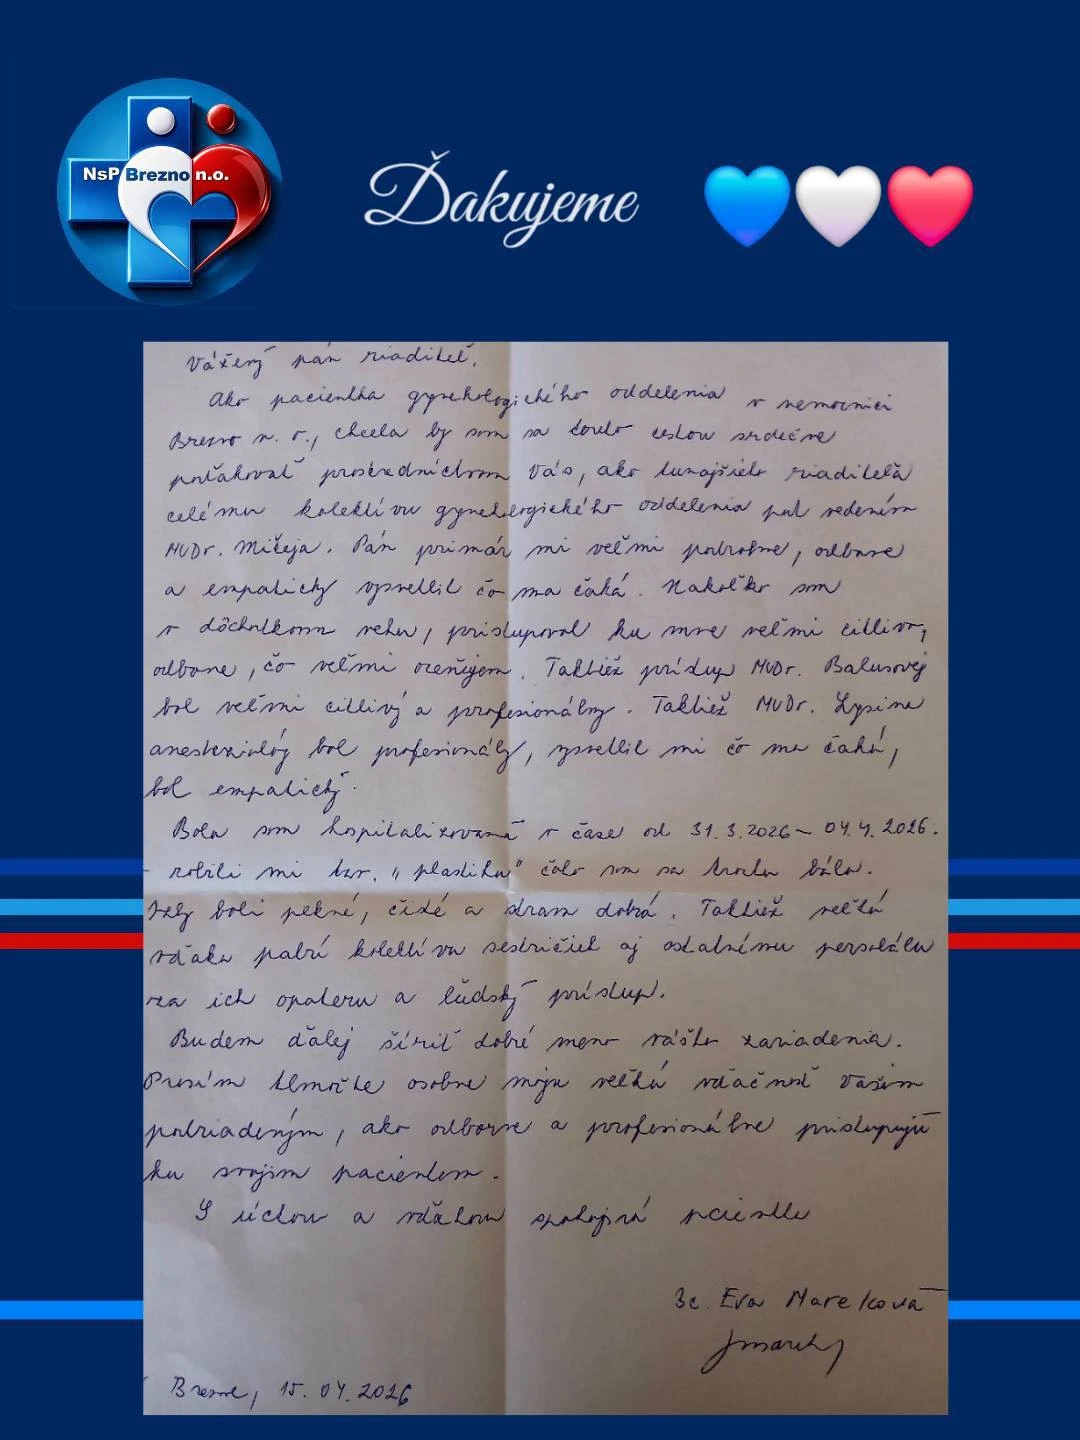 NsP Brezno n.o.
Ďakujeme
Vážený pán riaditeľ.
Ako pacientka gynekologického oddelenia v nemocnici
Brezno n. o., chcela by som sa touto cestou srdečne
poďakovať prostredníctvom Vás, ako tunajšieho riaditeľa
celému kolektívu gynekologického oddelenia pod vedením
MUDr. Mičeja. Pán primár mi veľmi podrobne, odborne
a empaticky vysvetlil čo ma čaká. Nakoľko som
v dôchodkovom veku, pristupoval ku mne veľmi citlivo,
odborne, čo veľmi oceňujem. Taktiež prístup MUDr. Balusovej
bol veľmi citlivý a profesionálny. Taktiež MUDr. Lysina
anesteziológ bol profesionály, vysvetlil mi čo ma čaká,
bol empatický.
Bola som hospitalizovaná v čase od 31.3.2026 - 04.4.2026.
robili mi tzv. "plastiku" čoho som sa trochu bála.
Izby boli pekné, čisté a strava dobrá. Taktiež veľká
vďaka patrí kolektívu sestričiek aj ostatnému personálu
za ich opateru a ľudský prístup.
Budem ďalej šíriť dobré meno vášho zariadenia.
Prosím tlmočte osobne moju veľkú vďačnosť Vašim
podriadeným, ako odborne a profesionálne pristupujú
ku svojim pacientom.
S úctou a vďakou spokojná
Bc. Eva Mareková
Brezno, 15.04.2026